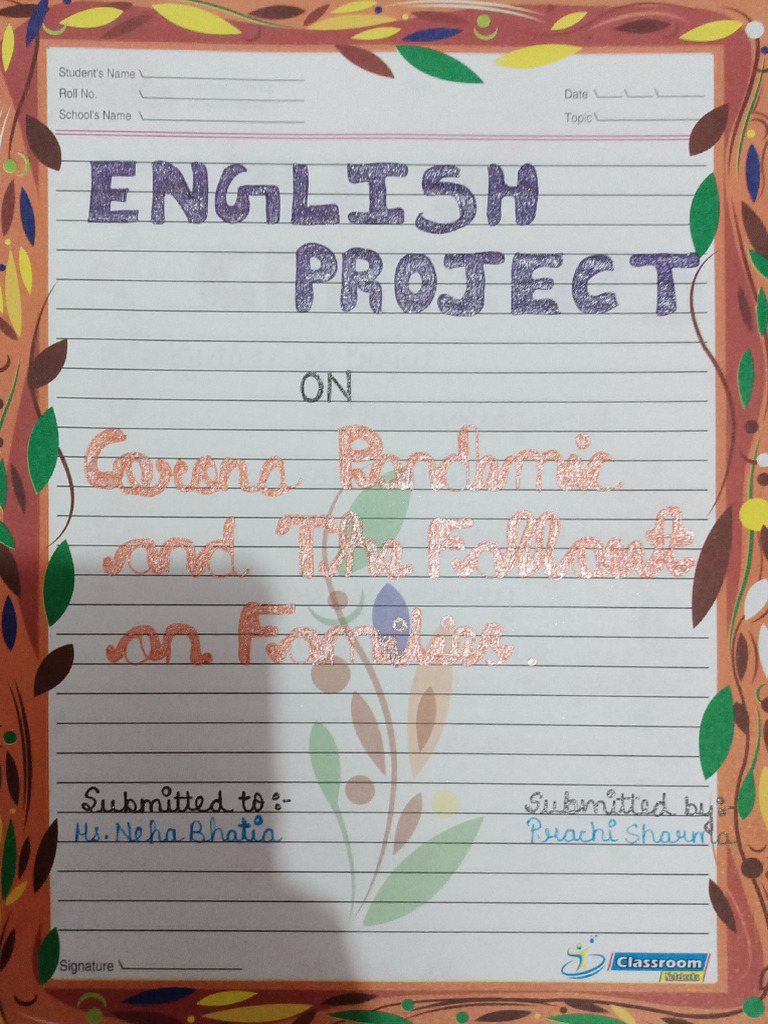 Student's Name
Roll No.
School's Name
Date
Topic
ENGLISH
PROJECT
ON
Corona Pandemic
and The Fallout
on Families.
Submitted to :-
Ms. Neha Bhatia
Submitted by:-
Prachi Sharma
Signature
Classroom